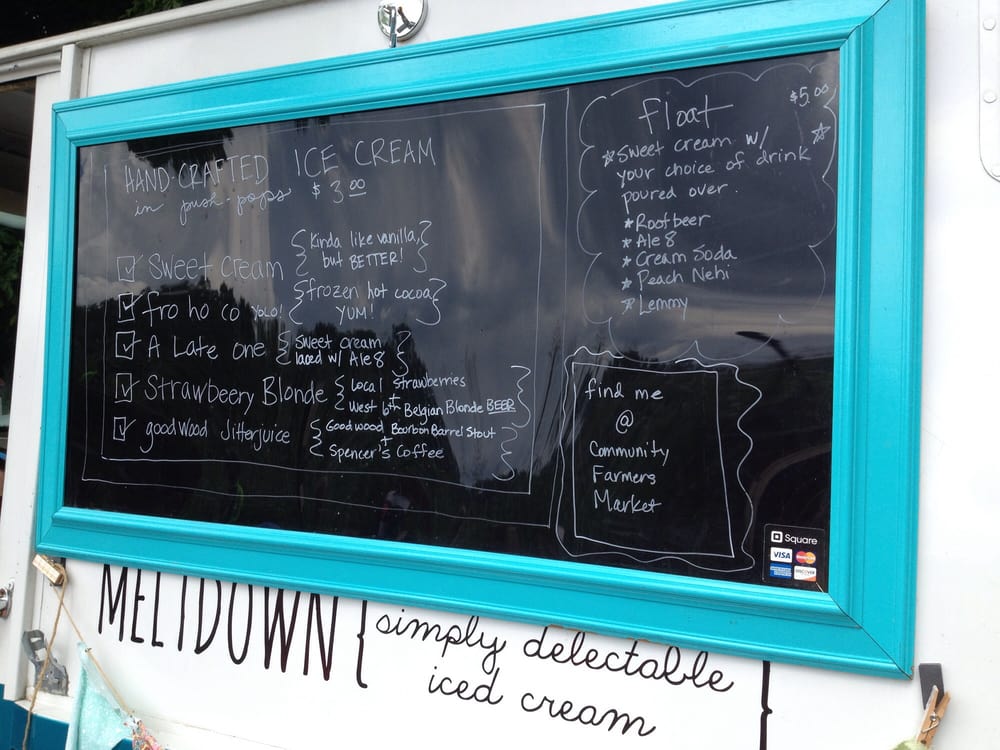 HAND CRAFTED ICE CREAM
in push-pops $3.00
Sweet Cream {Kinda like vanilla, but BETTER!}
fro ho co YOLO! {frozen hot cocoa YUM!}
A Late one {Sweet cream laced w/ Ale 8}
Strawbeery Blonde {Local Strawberries + West 6th Belgian Blonde BEER}
goodwood Jitterjuice {Goodwood Bourbon Barrel Stout + Spencer's Coffee}
float $5.00
Sweet cream w/
your choice of drink
poured over.
Rootbeer
Ale 8
Cream Soda
Peach Nehi
Lemmy
find me
@
Community
Farmers
Market
Square
VISA MasterCard
DISCOVER
MELTDOWN {simply delectable
iced cream}